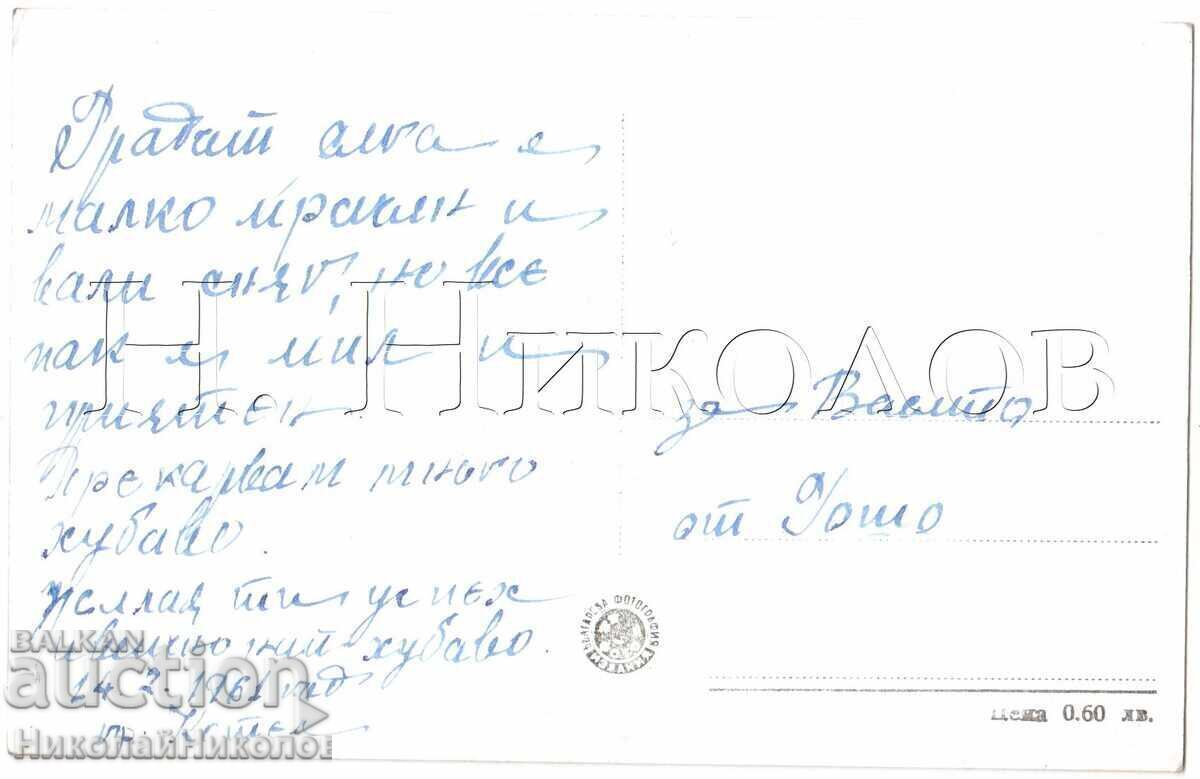 Градът сега е
малко мрачен и
вали сняг, но все
пак е мил и
приятен
Прекарвам много
хубаво.
Желая ти успех
и всичко най-хубаво.
24.2.1961 год
гр. Котел
за Васето
от Гошо
Н. Николов
БЪЛГАРСКА ФОТОГРАФИЯ
Цена 0.60 лв.
BALKAN
auction
НиколайНиколов